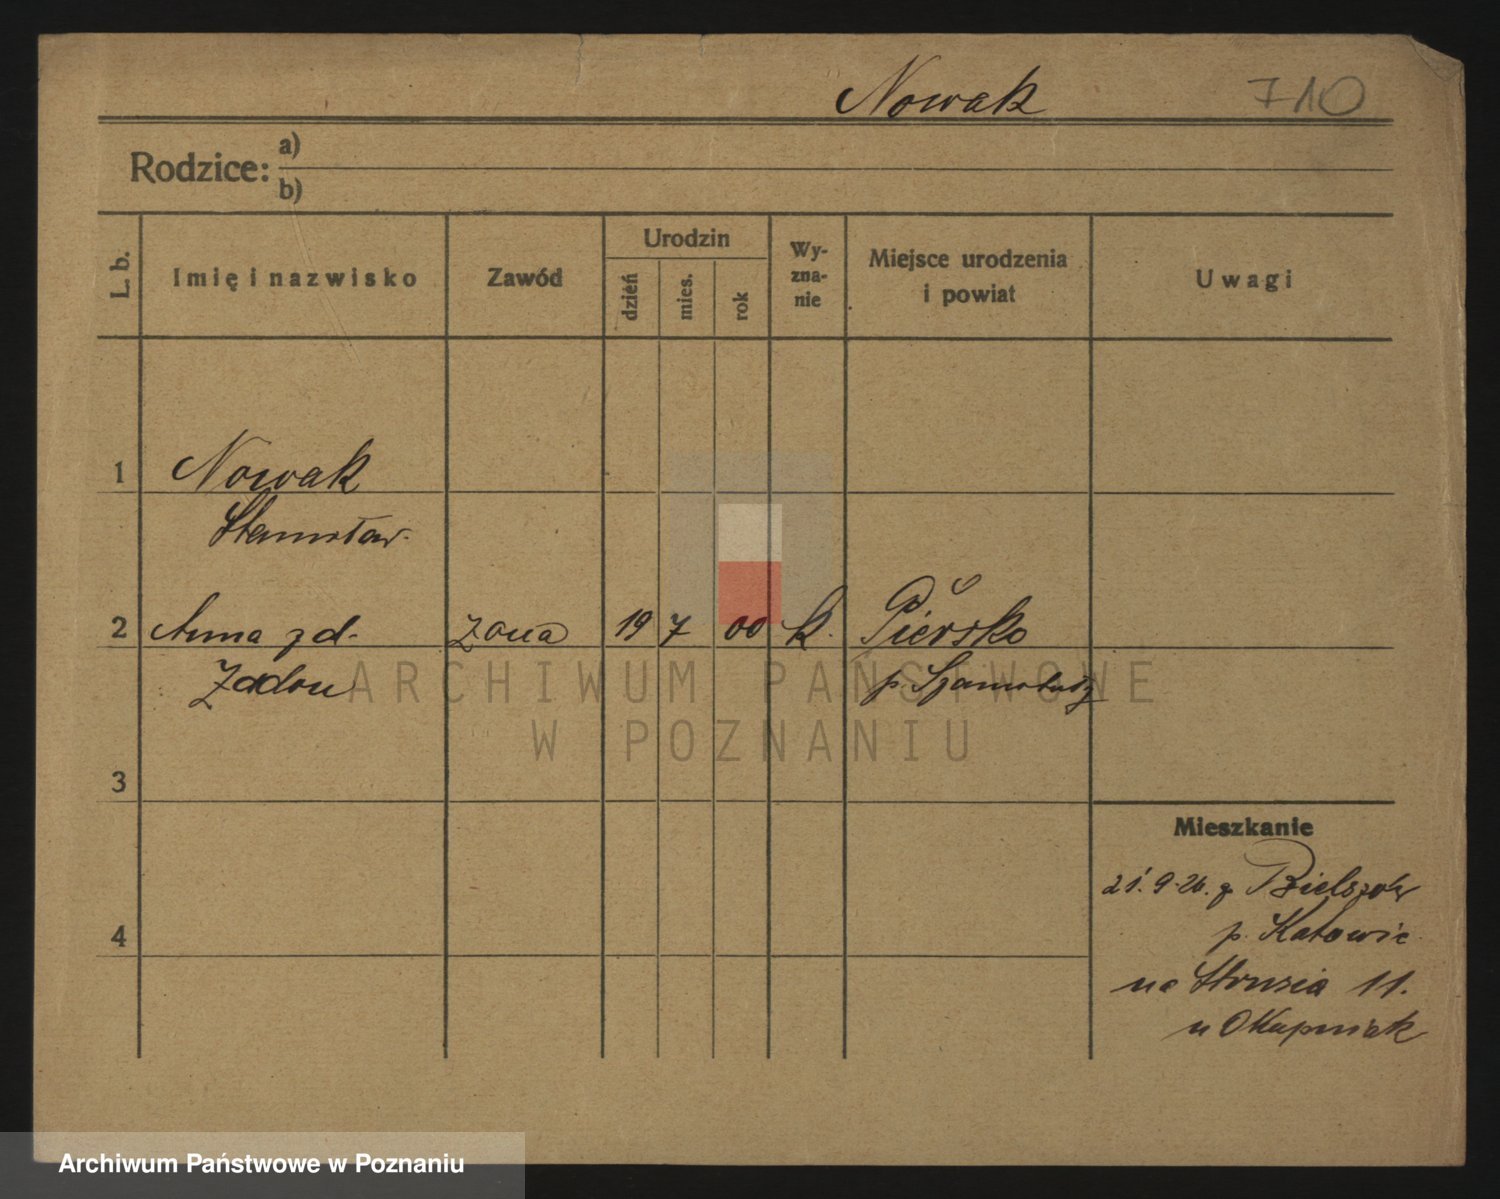 Nowak 710
Rodzice: a)
b)
L. b.
Imię i nazwisko
Zawód
Urodzin
dzień
mies.
rok
Wy-
zna-
nie
Miejsce urodzenia
i powiat
Uwagi
1 Nowak
Stanisław
2 Anna zd. żona 19 7 00 k. Piersko
p. Szamotuły
3
4
Mieszkanie
21. 9. 26. z
p. Katowic
na Strusia 11.
u
ARCHIWUM PAŃSTWOWE
W POZNANIU
Archiwum Państwowe w Poznaniu